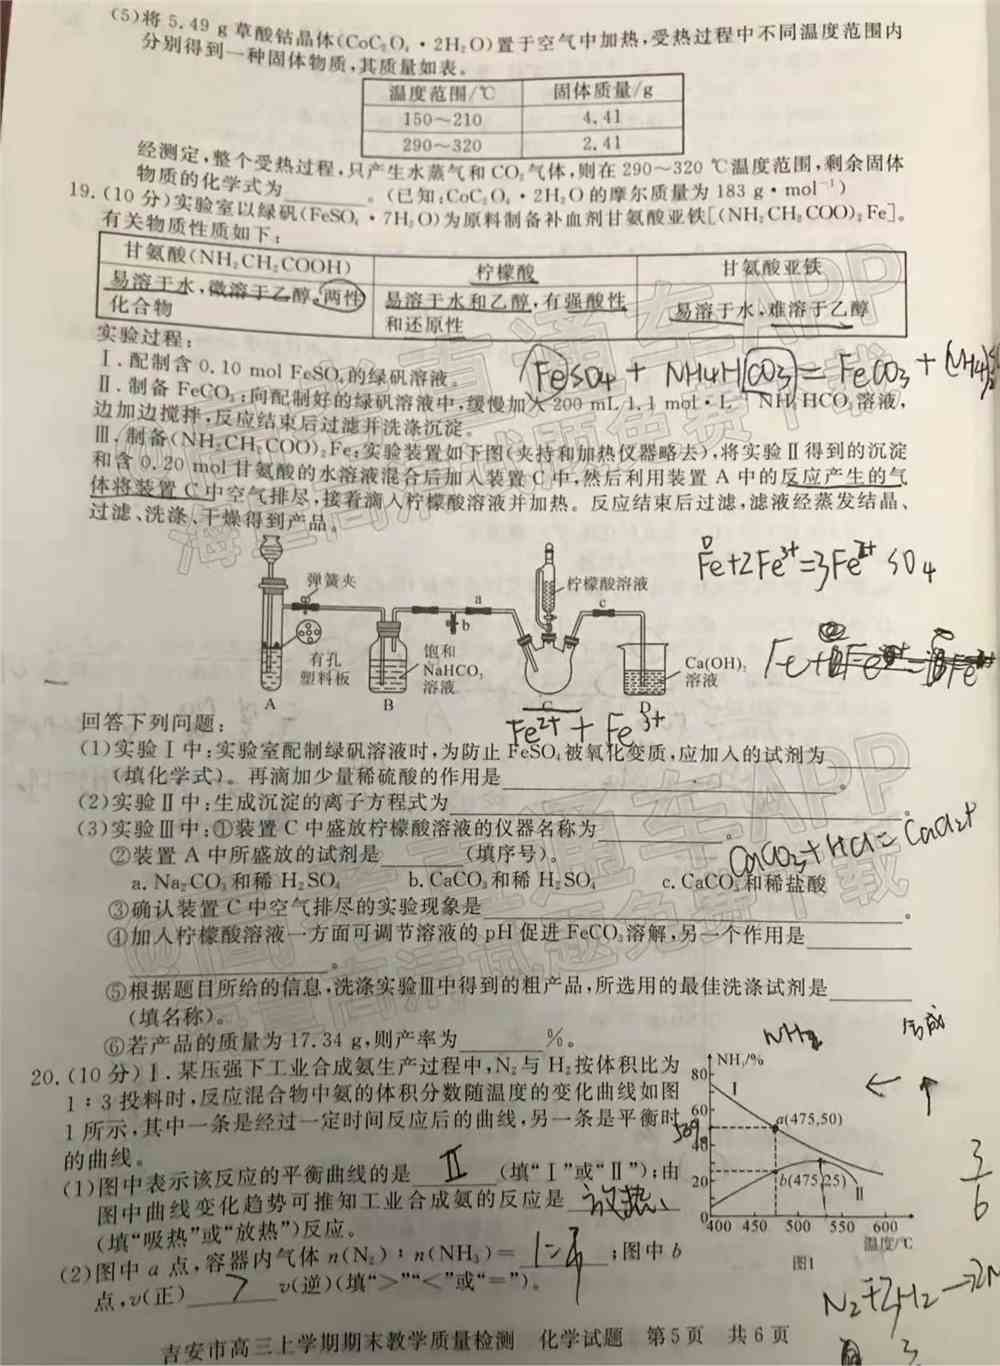 (5)将 5.49 g 草酸钴晶体(CoC₂O₄・2H₂O)置于空气中加热,受热过程中不同温度范围内
分别得到一种固体物质,其质量如表。
温度范围/℃ 固体质量/g
150～210 4.41
290～320 2.41
经测定,整个受热过程,只产生水蒸气和CO₂气体,则在 290～320 ℃温度范围,剩余固体
物质的化学式为________。(已知:CoC₂O₄・2H₂O的摩尔质量为 183 g・mol⁻¹)
19.(10分)实验室以绿矾(FeSO₄・7H₂O)为原料制备补血剂甘氨酸亚铁[(NH₂CH₂COO)₂Fe]。
有关物质性质如下:
甘氨酸(NH₂CH₂COOH) 柠檬酸 甘氨酸亚铁
易溶于水,微溶于乙醇,两性 易溶于水和乙醇,有强酸性 易溶于水,难溶于乙醇
化合物 和还原性
实验过程:
Ⅰ.配制含 0.10 mol FeSO₄的绿矾溶液。
FeSO4 + NH4HCO3 = FeCO3 +
Ⅱ.制备 FeCO₃:向配制好的绿矾溶液中,缓慢加入 200 mL 1.1 mol・L⁻¹ NH₄HCO₃溶液,
边加边搅拌,反应结束后过滤并洗涤沉淀。
Ⅲ.制备(NH₂CH₂COO)₂Fe:实验装置如下图(夹持和加热仪器略去),将实验Ⅱ得到的沉淀
和含 0.20 mol 甘氨酸的水溶液混合后加入装置 C 中,然后利用装置 A 中的反应产生的气
体将装置 C 中空气排尽,接着滴入柠檬酸溶液并加热。反应结束后过滤,滤液经蒸发结晶、
过滤、洗涤、干燥得到产品。
Fe+2Fe³⁺=3Fe²⁺ SO4
弹簧夹 a 柠檬酸溶液 c
b
有孔
塑料板
饱和
NaHCO₃
溶液
Ca(OH)₂
溶液
A B C D
Fe²⁺ + Fe³⁺
回答下列问题:
(1)实验Ⅰ中:实验室配制绿矾溶液时,为防止 FeSO₄被氧化变质,应加入的试剂为________
(填化学式)。再滴加少量稀硫酸的作用是________。
(2)实验Ⅱ中:生成沉淀的离子方程式为________。
(3)实验Ⅲ中:①装置 C 中盛放柠檬酸溶液的仪器名称为________。
CaCO3+HCl=CaCl2+
②装置 A 中所盛放的试剂是________(填序号)。
a. Na₂CO₃和稀 H₂SO₄ b. CaCO₃和稀 H₂SO₄ c. CaCO₃和稀盐酸
③确认装置 C 中空气排尽的实验现象是________。
④加入柠檬酸溶液一方面可调节溶液的 pH 促进 FeCO₃溶解,另一个作用是________
________。
⑤根据题目所给的信息,洗涤实验Ⅲ中得到的粗产品,所选用的最佳洗涤试剂是________
(填名称)。
⑥若产品的质量为 17.34 g,则产率为________%。
合成
20.(10分)Ⅰ.某压强下工业合成氨生产过程中,N₂与 H₂按体积比为
1∶3投料时,反应混合物中氨的体积分数随温度的变化曲线如图
1所示,其中一条是经过一定时间反应后的曲线,另一条是平衡时
的曲线。
(1)图中表示该反应的平衡曲线的是 Ⅱ (填“Ⅰ”或“Ⅱ”);由
图中曲线变化趋势可推知工业合成氨的反应是 放热
(填“吸热”或“放热”)反应。
(2)图中 a 点,容器内气体 n(N₂)∶n(NH₃)=________;图中 b
点,v(正) > v(逆)(填“>”“<”或“=”)。
NH₃/%
80
60
40
20
0
Ⅰ
a(475,50)
b(475,25)
Ⅱ
400 450 500 550 600
温度/℃
图1
3
6
吉安市高三上学期期末教学质量检测 化学试题 第5页 共6页